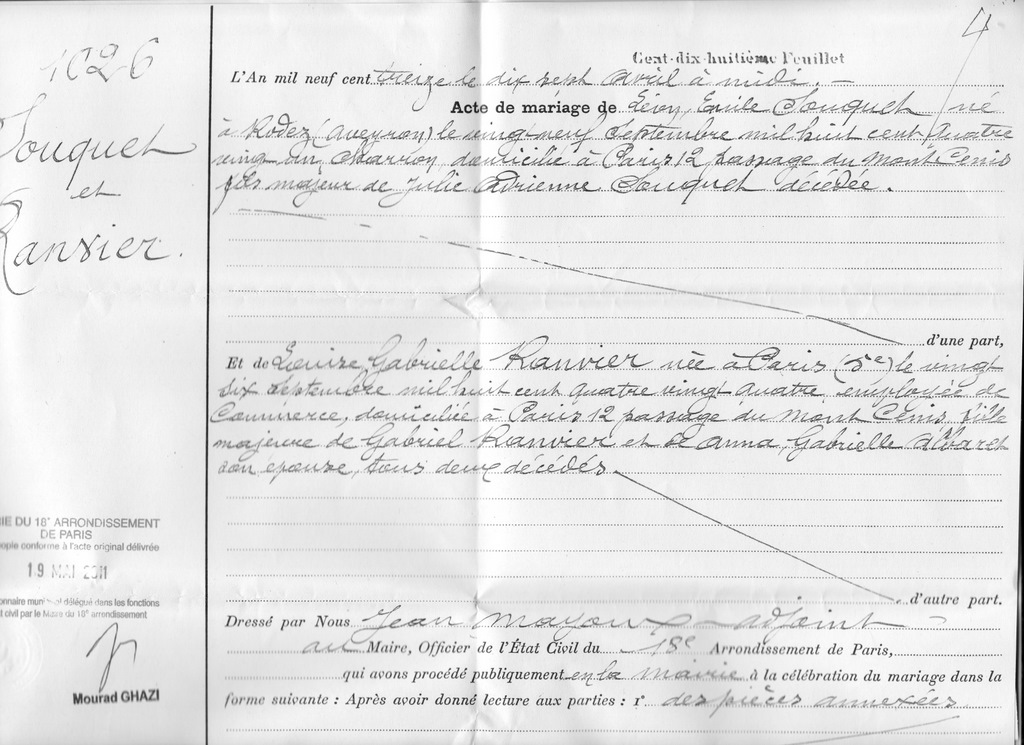 4
1026
Souquet
et
Ranvier.
Cent-dix-huitième Feuillet
L'An mil neuf cent treize le dix sept avril à midi. —
Acte de mariage de Léon, Emile Souquet né
à Rodez (Aveyron) le vingt neuf Septembre mil huit cent quatre
vingt un charron, domicilié à Paris 12 passage du Mont Cenis
fils majeur de Julie Adrienne Souquet décédée.
d'une part,
Et de Louise, Gabrielle Ranvier née à Paris (5e) le vingt
six septembre mil huit cent quatre vingt quatre, employée de
Commerce, domiciliée à Paris 12 passage du Mont Cenis, fille
majeure de Gabriel Ranvier et de Anna, Gabrielle
son épouse, tous deux décédés.
d'autre part.
Dressé par Nous Jean Mayoux adjoint
au Maire, Officier de l'État Civil du 18e Arrondissement de Paris,
qui avons procédé publiquement en la mairie à la célébration du mariage dans la
forme suivante : Après avoir donné lecture aux parties : 1° des pièces annexées
IE DU 18e ARRONDISSEMENT
DE PARIS
opie conforme à l'acte original délivrée
19 MAI 2011
onnaire municipal délégué dans les fonctions
t civil par le Maire du 18e arrondissement
Mourad GHAZI